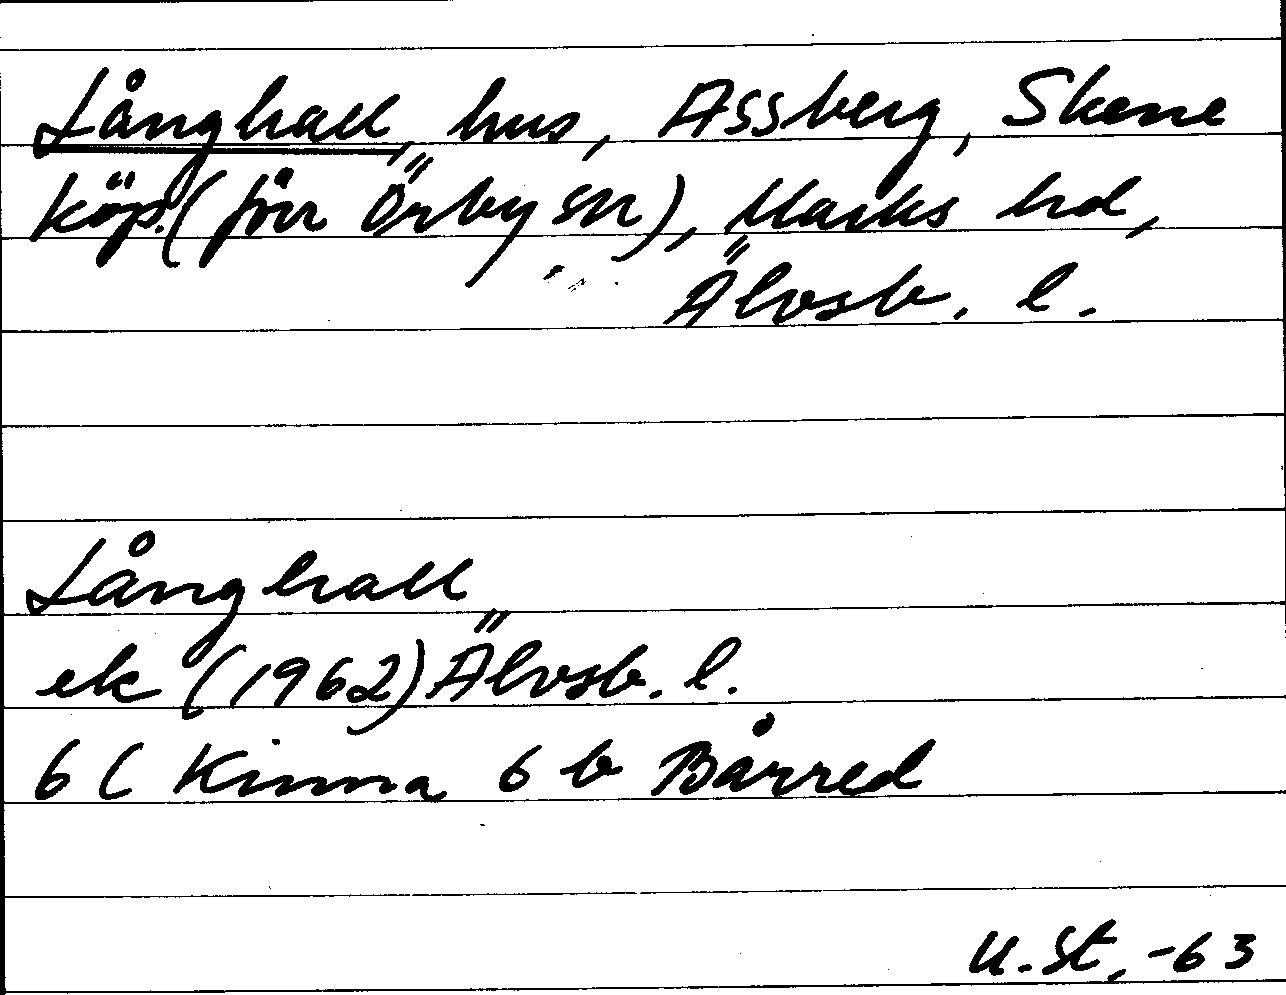 Långhall, hus, Assberg, Skene
köp. (förr Örby sn), Marks hd,
Älvsb. l.
Långhall
ek (1962) Älvsb. l.
6 C Kinna 6 b Bårred
U. St, -63